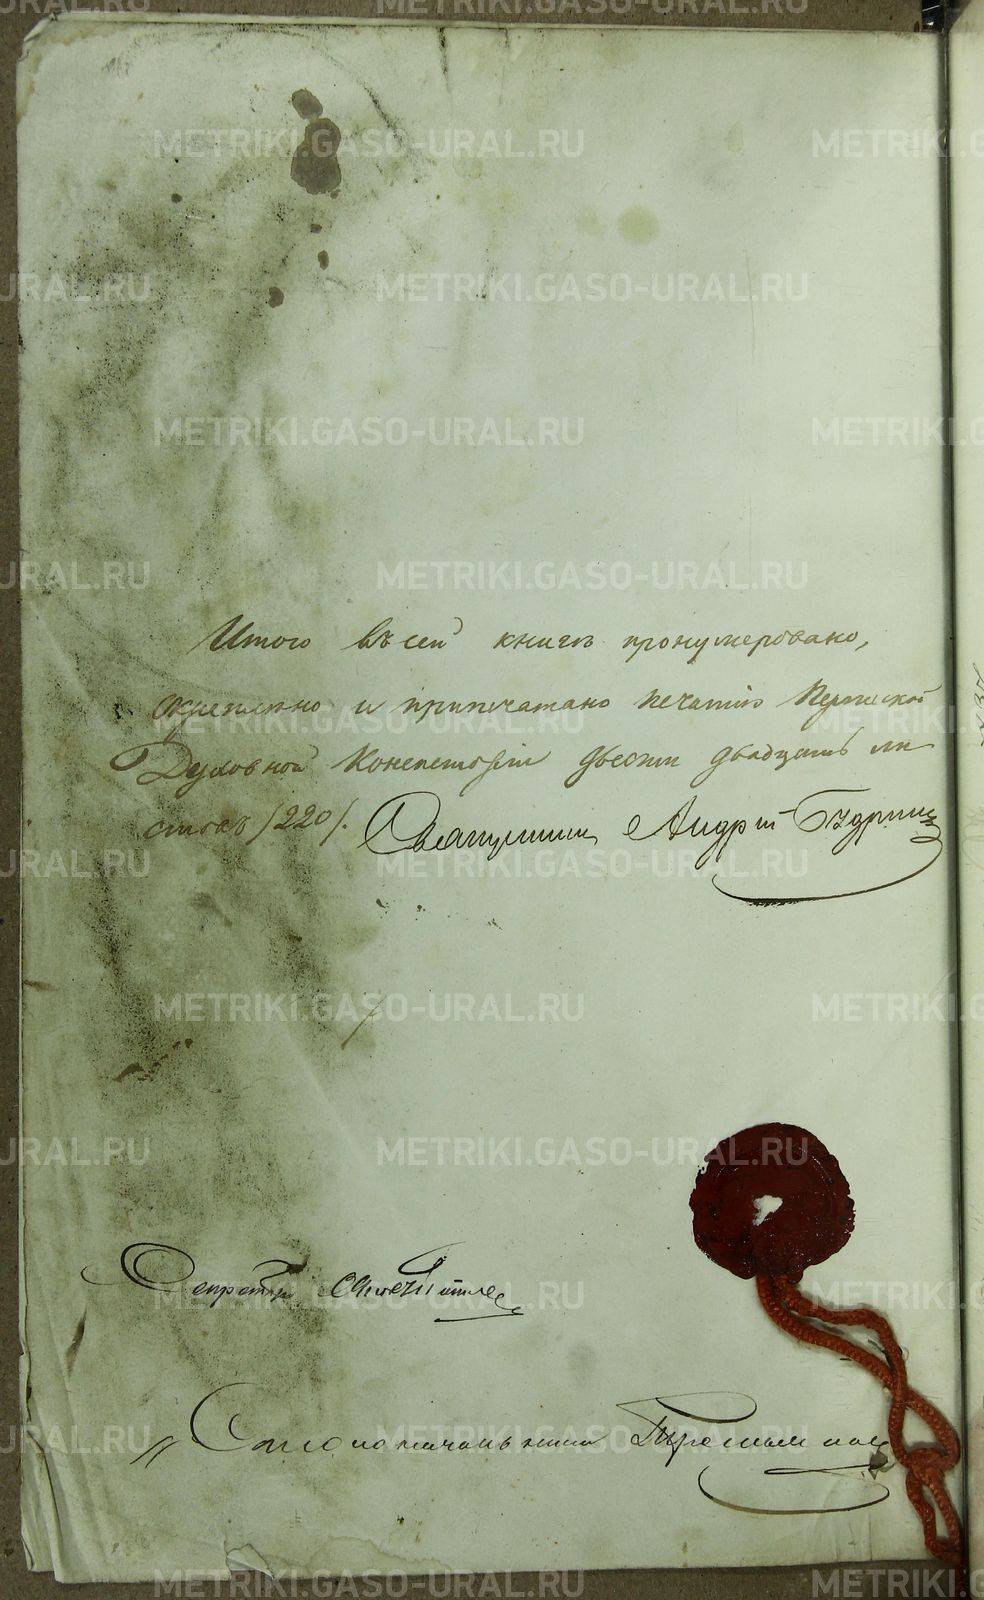 Итого въ сей книгѣ пронумеровано,
скреплено и припечатано печатію Пермской
Духовной Консисторіи двести двадцать ли
стовъ /220/. Андрей Будрин
Секретарь
Столоначальник
METRIKI.GASO-URAL.RU